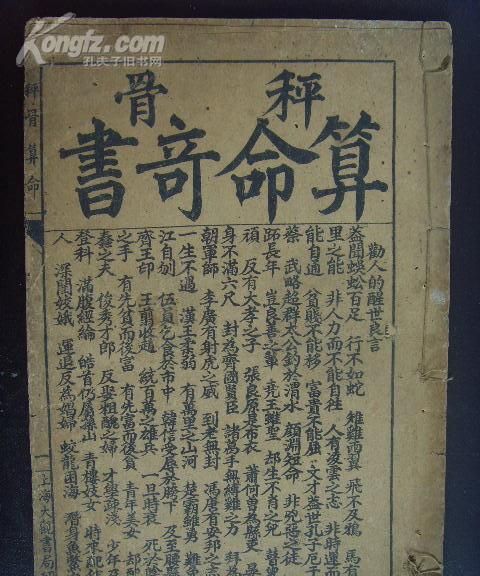 Kongfz.com
孔夫子旧书网
秤骨
算命奇書
勸人的醒世良言
盖聞蜈蚣百足 行不如蛇 雉雞兩翼 飛不及鴉 馬有
里之能 非人力而不能自往 人有凌雲之志 非時運而
能自通 貧賤不能移 富貴不能屈 文才盖世孔子厄
蔡 武略超群太公釣於渭水 顏淵短命 非兇惡之徒
長年 豈良善之輩 堯王雖聖 却生不肖之兒 瞽
頑 反有大孝之子 張良原是布衣 蕭何曾為縣吏 晏
身不滿六尺 封為齊國賢臣 諸葛手無縛雞之力 拜為
朝軍師 李廣有射虎之威 到老無封 馮唐有安邦之志
一生不遇 漢王柔弱 有萬里之山河 楚霸雖勇 難
江自刎 伍員乞食於市中 韓信受辱於胯下 及至腰懸
齊王印 王翦收趙 統百萬之雄兵 一旦時衰 死於陰
之手 有先貧而後富 有先富而後貧 青年美女 却配
蠢之夫 俊秀才郎 反娶粗醜之婦 才學疎淺 少年及
登科 滿腹經綸 皓首仍居深山 青樓妓女 時來配
人 深閨娥 運退反為娼婦 蛟龍困海 潛身魚
秤骨算命
上海大觀書局